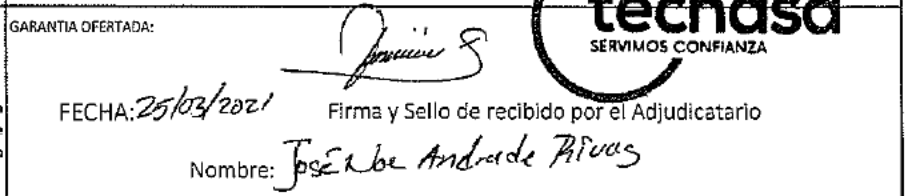 GARANTIA OFERTADA:
tecnasa
SERVIMOS CONFIANZA
FECHA: 25/03/2021
Firma y Sello de recibido por el Adjudicatario
Nombre: José Noe Andrade Rivas